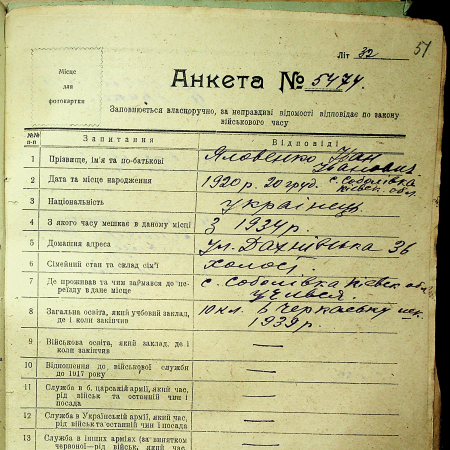 51
Літ 32
Місце
для
фотокартки
Анкета № 5474.
Заповнюється власноручно, за неправдиві відомості відповідає по закону
військового часу
№№ п-п Запитання Відповіді
1 Прізвище, ім'я та по-батькові Яловенко Іван
Іванович.
2 Дата та місце народження 1920 р. 20 груд. с. Соболівка
Київськ. обл.
3 Національність українець
4 З якого часу мешкає в даному місці З 1934 р.
5 Домашня адреса Ул. Дахнівська 36
6 Сімейний стан та склад сім'ї Холост.
7 Де проживав та чим займався до переїзду в дане місце с. Соболівка Києвск. обл.
учився.
8 Загальна освіта, який учбовий заклад,
де і коли закінчив 10 кл. в Черкаську шк.
1939 р.
9 Військова освіта, який заклад, де і
коли закінчив —
10 Відношення до військової служби
до 1917 року —
11 Служба в б. царській армії, який час,
рід військ та останній чин і
посада —
12 Служба в Українській армії, який час,
рід військ та останній чин і посада —
13 Служба в інших арміях (за винятком
червоної—рід військ, який час, —